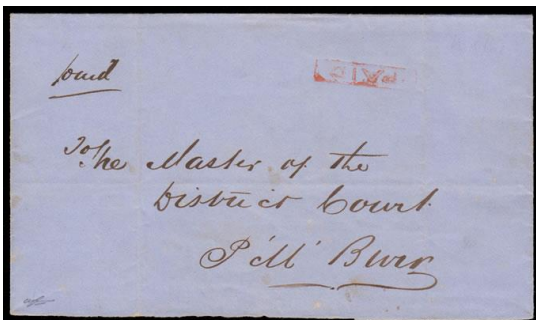 paid
PAID
To The Master of the
District Court
P'M' Burg